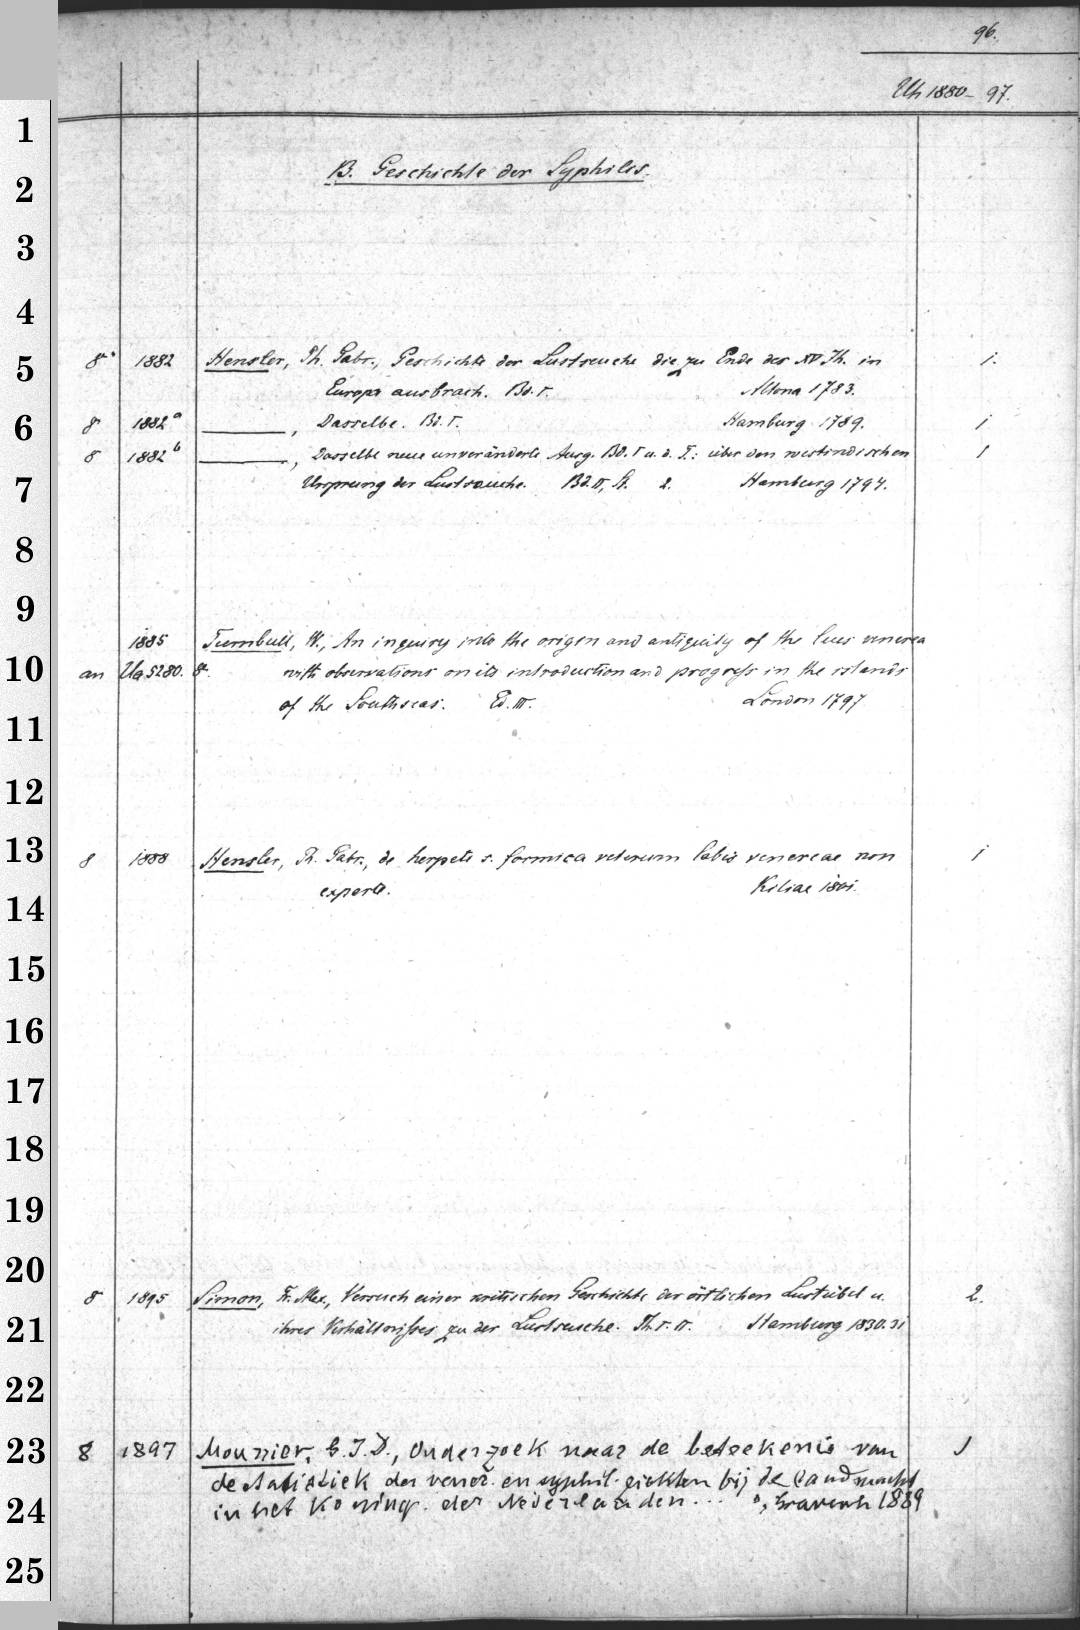 96.
Uh 1880-97.
B. Geschichte der Syphilis.
8° 1882 Hensler, Ph. Gabr., Geschichte der Lustseuche die zu Ende des XV Jh. in 1.
Europa ausbrach. Bd. I. Altona 1783.
8 1882a ———, Dasselbe. Bd. I. Hamburg 1789. 1
8 1882b ———, Dasselbe neue unveränderte Ausg. Bd. I u. d. T.: über den westindischen 1
Ursprung der Lustseuche. Bd. II, St. 2. Hamburg 1794.
1885 Turnbull, W., An inquiry into the origin and antiquity of the lues venerea
an Ua 5280. 8. with observations on its introduction and progress in the islands
of the Southseas. Ed. III. London 1797
8 1888 Hensler, Ph. Gabr., de herpete s. formica veterum labis venereae non 1
experte. Kiliae 1801.
8 1895 Simon, Fr. Alex., Versuch einer kritischen Geschichte der örtlichen Lustübel u. 2.
ihres Verhältnisses zu der Lustseuche. Th. I. II. Hamburg 1830.31
8 1897 Mounier, G. J. D., Onderzoek naar de beteekenis van 1
de statistiek der vener. en syphil. ziekten bij de landmacht
in het Koningr. der Nederlanden... s'Gravenh 1889
1
2
3
4
5
6
7
8
9
10
11
12
13
14
15
16
17
18
19
20
21
22
23
24
25